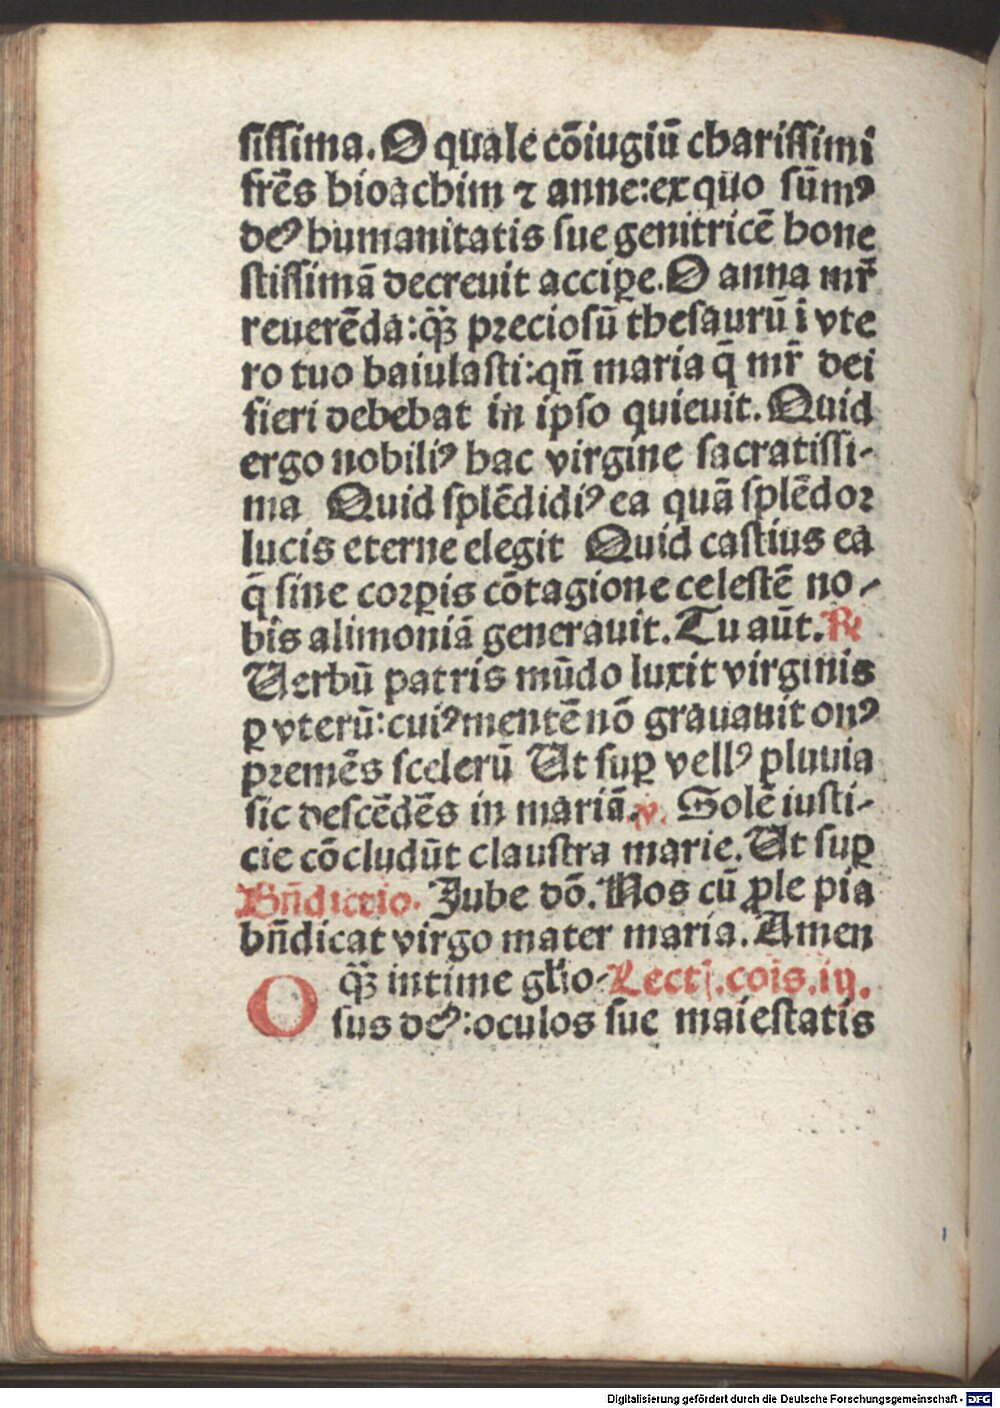 sissima. O quale cōiugiū charissimi
frēs hioachim ⁊ anne: ex quo sūmꝰ
deꝰ humanitatis sue genitricē hone
stissimā decreuit accipe. O anna mr̄
reuerēda: qꝫ̄ preciosū thesaurū ī vte
ro tuo baiulasti: qn̄ maria q̄ mr̄ dei
fieri debebat in ipso quieuit. Quid
ergo nobiliꝰ hac virgine sacratissi-
ma Quid splēdidiꝰ ea quā splēdor
lucis eterne elegit Quid castius ea
q̄ sine corꝑis cōtagione celestē no-
bis alimoniā generauit. Tu aūt. ℟
Verbū patris mūdo luxit virginis
ꝑ vterū: cuiꝰ mentē nō grauauit onꝰ
premēs scelerū Ut suꝑ vellꝰ pluuia
sic descēdēs in mariā. v. Solē iusti-
cie cōcludūt claustra marie. Ut suꝑ
Bn̄dictio. Jube dō. Nos cū ꝓle pia
bn̄dicat virgo mater maria. Amen
O qꝫ̄ intime glīo- Lectj. cōis. iij.
sus deꝰ: oculos sue maiestatis
Digitalisierung gefördert durch die Deutsche Forschungsgemeinschaft - DFG